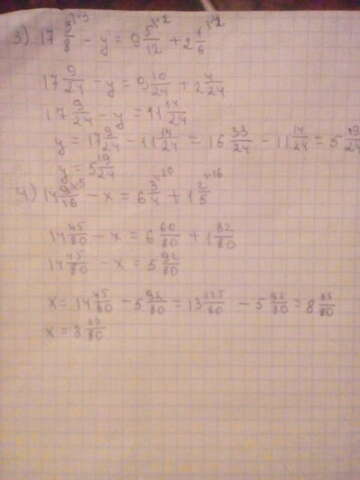 3) 17 3/8 - y = 9 5/12 + 2 1/6
17 9/24 - y = 9 10/24 + 2 4/24
17 9/24 - y = 11 14/24
y = 17 9/24 - 11 14/24 = 16 33/24 - 11 14/24 = 5 19/24
y = 5 19/24
4) 14 9/16 - x = 6 3/4 + 1 2/5
14 45/80 - x = 6 60/80 + 1 32/80
- x = 5 92/80
x = 14 - 5 92/80 = 13 - 5 92/80 = 8
x = 8